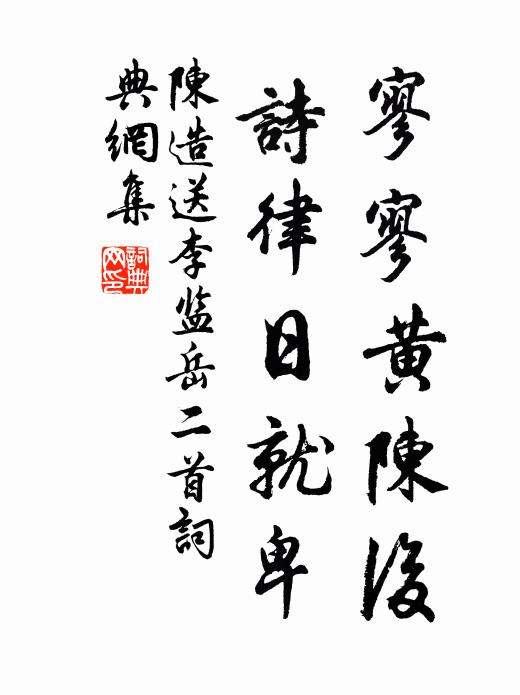 寥寥黃陳後
詩律日就卑
陳造送李監岳二首詞
典網集
詞典
网印